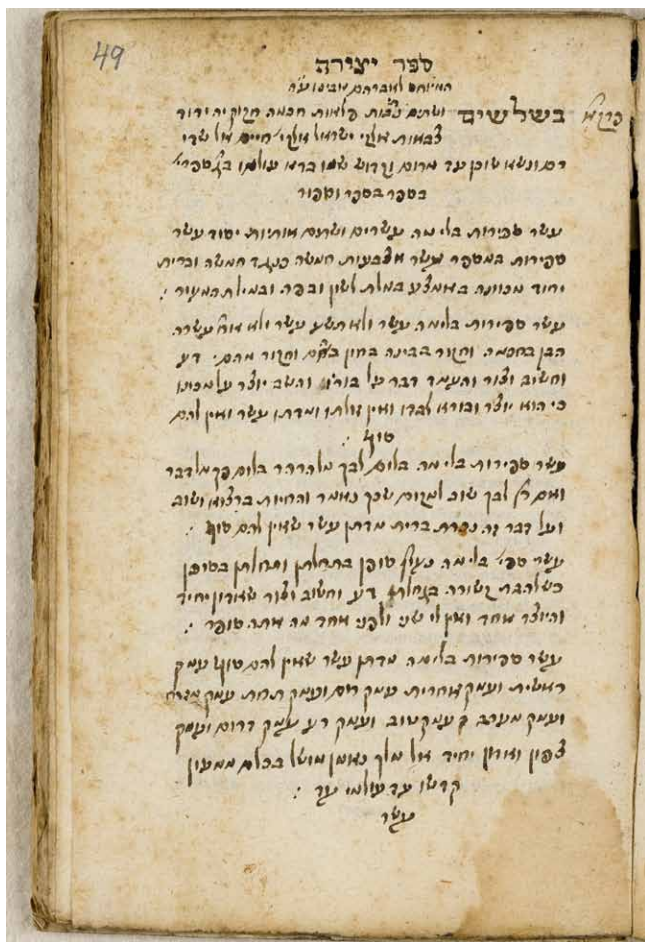 49
ספר יצירה
המיוחס לאברהם אבינו ע״ה
פרק א׳ בשלשים ושתים נתיבות פלאות חכמה חקק יה יהוד
צבאות אלקי ישראל אלקי׳ חיים אל שדי
רם ונשא שוכן עד מרום וקדוש שמו ברא עולמו בג׳ ספרי׳
בספר בספר וספור
עשר ספירות בלי מה. עשרים ושתים אותיות יסוד עשר
ספירות במספר עשר אצבעות חמשה כנגד חמשה וברית
יחוד מכוונה באמצע במלת לשון ובפה. ובמילת המעור :
עשר ספירות בלי מה עשר ולא תשע עשר ולא אחד עשרה.
הבן בחכמה. וחקור בבינה בחון בהם וחקור מהם. דע
וחשוב וצור והעמד דבר על בוריו והשב יוצר על מכונו
כי הוא יוצר ובורא לבדו ואין זולתו ומדתו עשר ואין להם
סוף :
עשר ספירות בלי מה. בלום לבך מלהרהר בלום פיך מלדבר
ואם רץ לבך שוב למקום שכך נאמר והחיות ברצוא ושוב
ועל דבר זה נכרת ברית מדתן עשר שאין להם סוף :
עשר ספי׳ בלי מה נעוץ סופן בתחלתן ותחלתן בסופן
כשלהבת קשורה בגחלת דע וחשוב וצור שאדון יחיד
והיוצר אחד ואין לו שני ולפני אחד מה אתה סופר :
עשר ספירות בלי מה מדתן עשר שאין להם סוף עמק
ראשית ועמק אחרית עמק רום ועמק תחת עמק מזרח
ועמק מערב עמק טוב ועמק רע עמק דרום ועמק
צפון ואדון יחיד אל מלך נאמן מושל בכלם ממעון
קדשו עד עולמי עד :
עשר